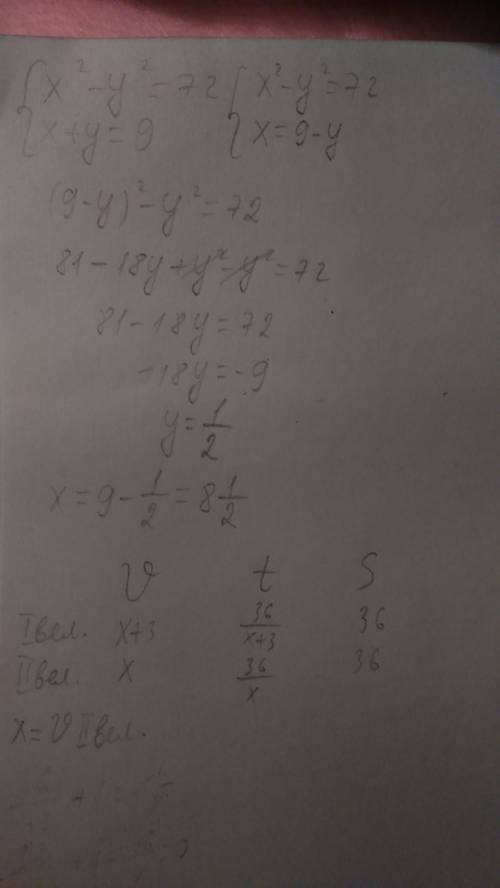 {x²-y²=72 {x²-y²=72
{x+y=9 {x=9-y
(9-y)²-y²=72
81-18y+y²-y²=72
81-18y=72
-18y=-9
y=1/2
x=9-1/2=8 1/2
V t S
I вел. x+3 36/(x+3) 36
II вел. x 36/x 36
x=V II вел.